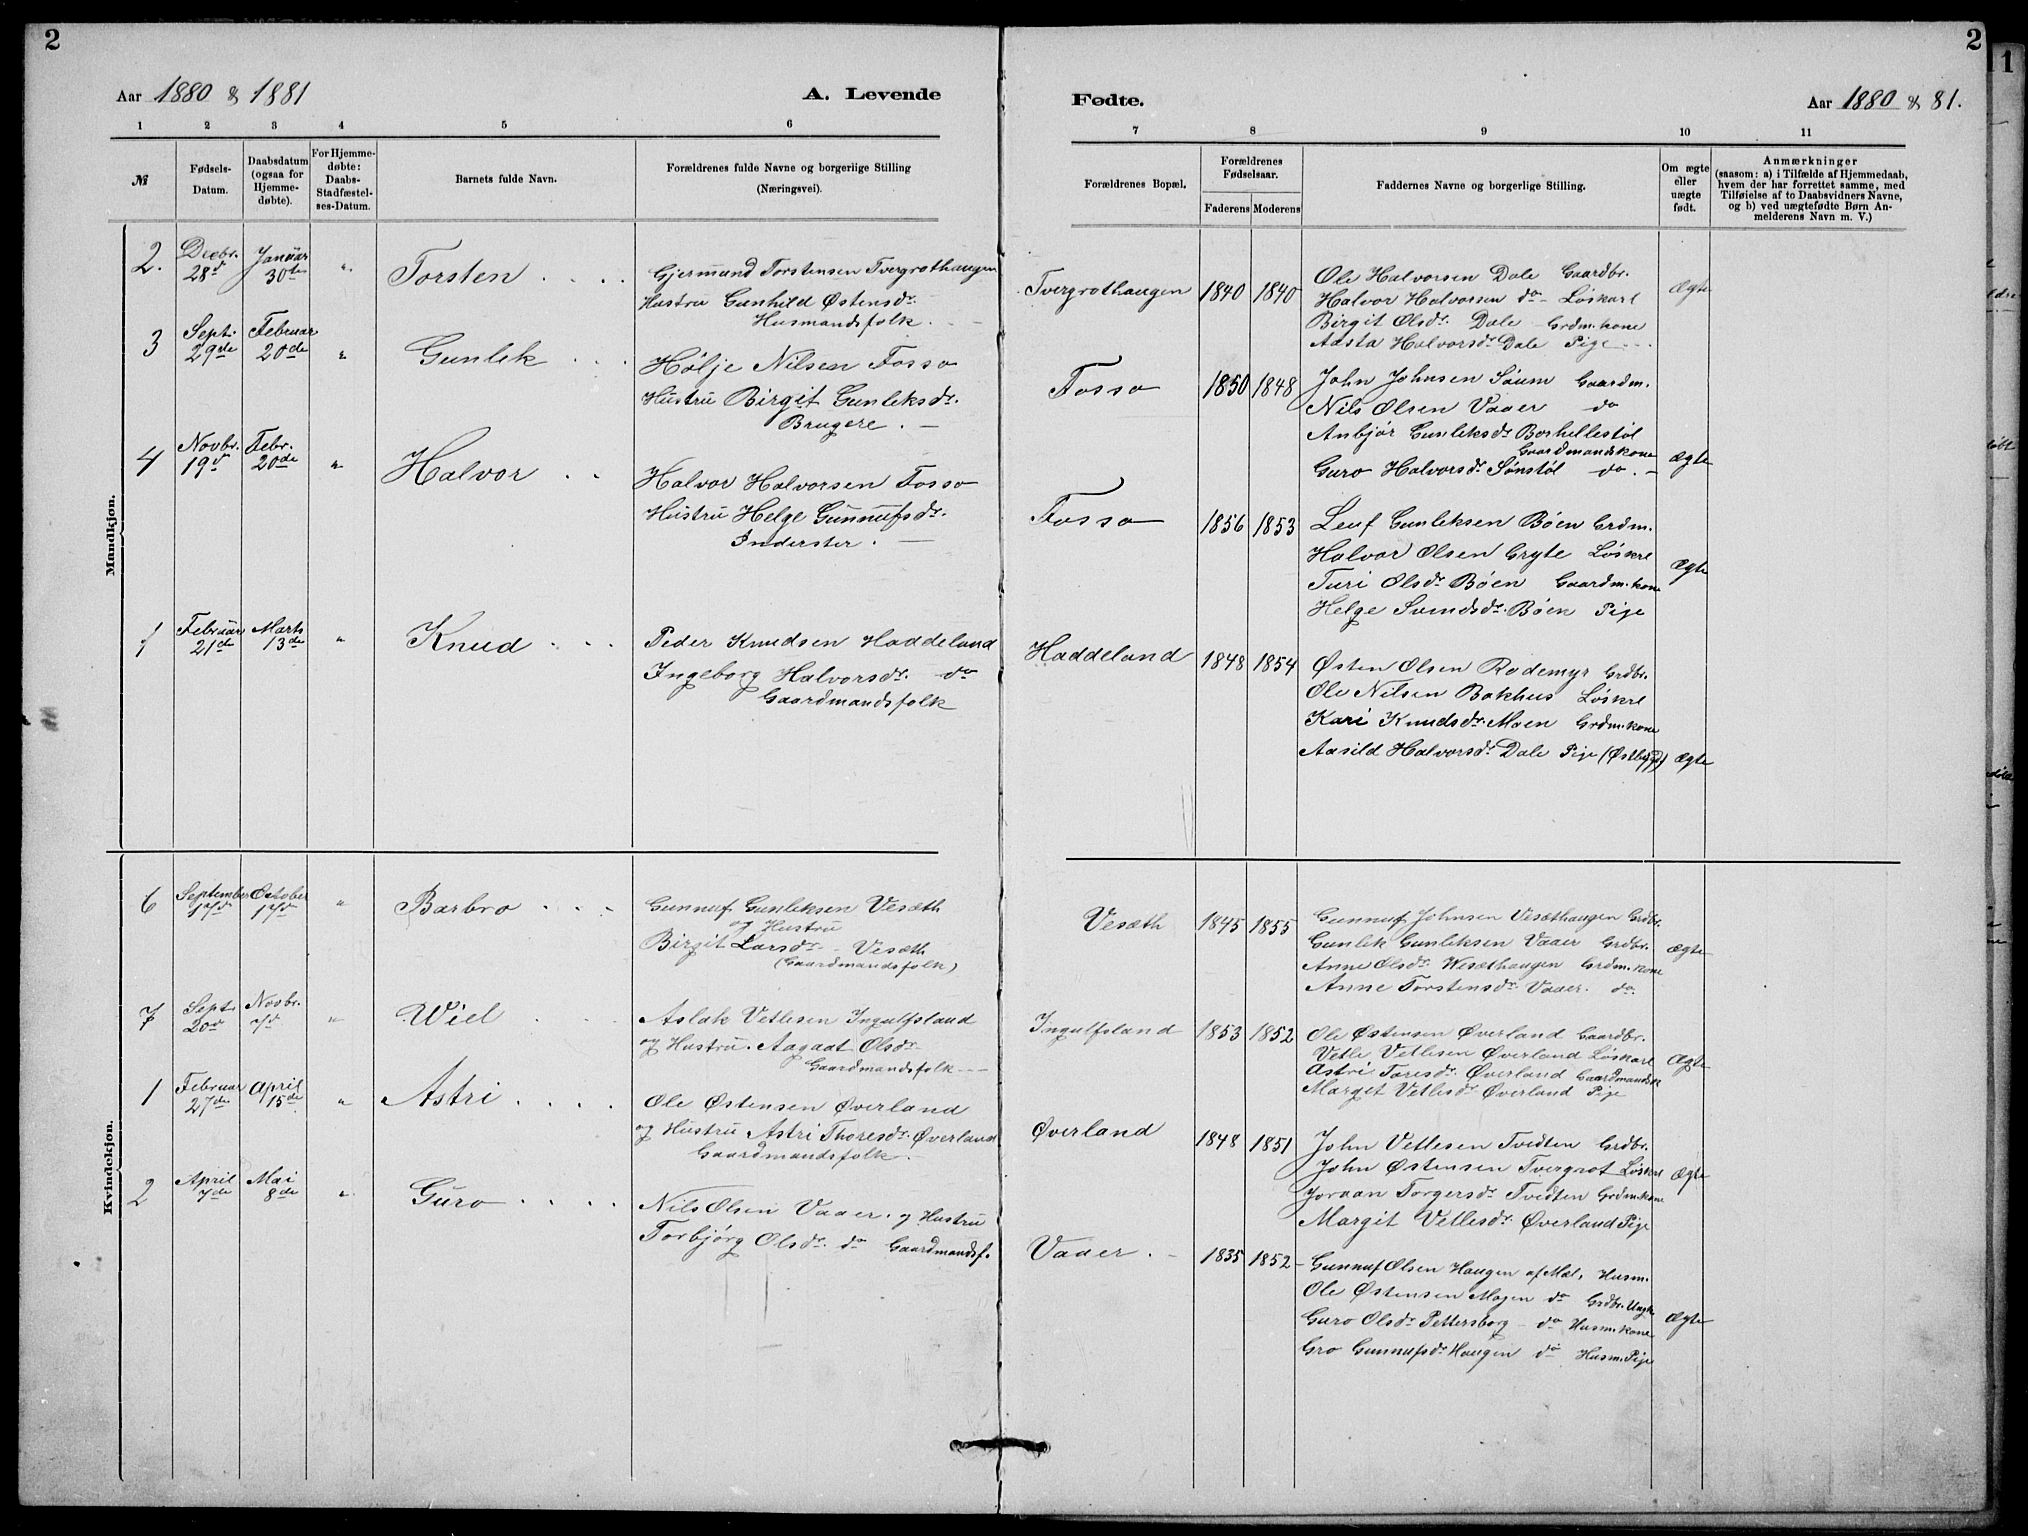 2
Aar 1880 & 1881
A. Levende
1 2 3 4 5 6
№
Fødsels-
Datum.
Daabsdatum
(ogsaa for
Hjemme-
døbte).
For Hjemme-
døbte:
Daabs-
Stadfæstel-
ses-Datum.
Barnets fulde Navn.
Forældrenes fulde Navne og borgerlige Stilling
(Næringsvei).
Mandkjøn.
2. Decbr. Januar
28d 30te " Torsten
Gjermund Torstensen Tvergrothaugen
Hustru Gunhild Østensdr.
Husmandsfolk.
3 Sept. Februar
29de 20de " Gunlek
Hølje Nilsen Fosso
Hustru Birgit Gunleksdr.
Brugere.
4 Novbr. Febr.
19d 20de " Halvor
Halvor Halvorsen Fosso
Hustru Helge Gunnufsdr.
Inderster.
1 Februar Marts
21de 13de " Knud
Peder Knudsen Haddeland
Ingeborg Halvorsdr. do
Gaardmandsfolk
Kvindekjøn.
6 September October
17d 17d " Barbro
Gunnuf Gunleksen Vesæth
og Hustru
Birgit Larsdr. Vesæth
(Gaardmandsfolk)
7 Sept. Novbr.
20d 7d " Wiel
Aslak Vetlesen Ingulfsland
og Hustru Aagaat Olsdr.
Gaardmandsfolk
1 Februar April
27de 15de " Astri
Ole Østensen Øverland
og Hustru Astri Thoresdr. Øverland
Gaardmandsfolk
2 April Mai
7de 8de " Guro
Nils Olsen Vaaer og Hustru
Torbjørg Olsdr. do Gaardmandsf.
2
Fødte.
Aar 1880 & 81.
7 8 9 10 11
Forældrenes Bopæl.
Forældrenes
Fødselsaar.
Faderens Moderens
Faddernes Navne og borgerlige Stilling.
Om ægte
eller
uægte
født.
Anmærkninger
(saasom: a) i Tilfælde af Hjemmedaab,
hvem der har forrettet samme, med
Tilføielse af to Daabsvidners Navne,
og b) ved uægtefødte Børn An-
melderens Navn m. V.)
Tvergrothaugen 1840 1840
Ole Halvorsen Dale Gaardbr.
Halvor Halvorsen do Løskarl
Birgit Olsdr. Dale Grdm.kone
Aasta Halvorsdr. Dale Pige
Ægte
Fosso 1850 1848
John Johnsen Søum Gaardm.
Nils Olsen Vaaer do
Anbjør Gunleksdr. Borhellestøl
Gaardmandskone
Guro Halvorsdr. Sønstøl do
Ægte
Fosso 1856 1853
Leuf Gunleksen Bøen Grdm.
Halvor Olsen Gryte Løskrl
Turi Olsdr. Bøen Gaardm.kone
Helge Svendsdr. Bøen Pige
Ægte
Haddeland 1848 1854
Østen Olsen Rodemyr Grdbr.
Ole Nilsen Bakhus Løskrl
Kari Knudsdr. Moen Grdm.kone
Aasild Halvorsdr. Dale Pige (Østbygd)
Ægte
Vesæth 1845 1855
Gunnuf Johnsen Vesæthaugen Grdbr.
Gunlek Gunleksen Vaaer Grdbr.
Anne Olsdr. Wesæthaugen Grdm.kone
Anne Torstensdr. Vaaer. do.
Ægte
Ingulfsland 1853 1852
Ole Østensen Øverland Gaardbr.
Vetle Vetlesen Øverland Løskarl
Astri Toresdr. Øverland Gaardmandsk
Marget Vetlesdr. Øverland Pige
Ægte
Øverland 1848 1851
John Vetlesen Tvedten Grdbr.
John Østensen Tvergrot Løskrl
Joraan Torgersdr. Tvedten Grdm.kone
Margit Vetlesdr. Øverland Pige
Ægte
Vaaer. 1835 1852
Gunnuf Olsen Haugen af Mæl, Husm.
Ole Østensen Mogen do Grdbr. Ungk.
Guro Olsdr. Pettersborg do Husm.kone
Gro Gunnufsdr. Haugen do Husm. Pige
Ægte
1